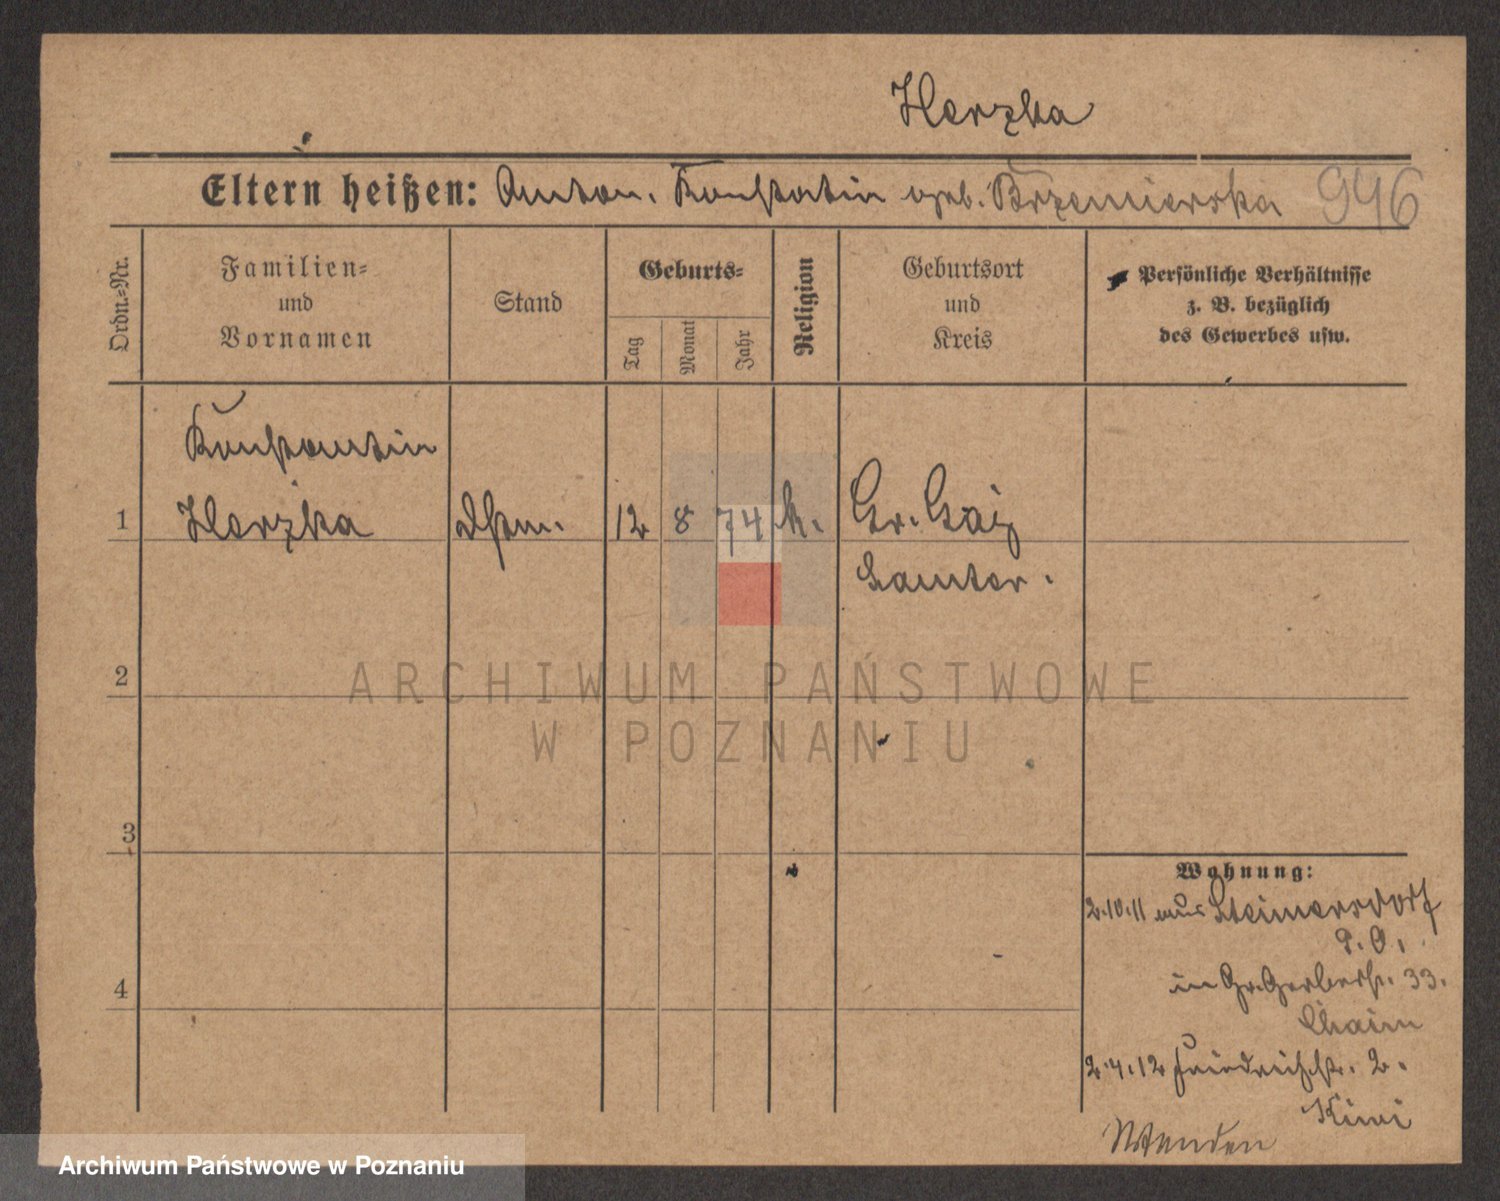 Herzka
Eltern heißen: Anton. Konstatin geb. Brzemierska 946
Ordn.-Nr.
Familien-
und
Vornamen
Stand
Geburts-
Tag
Monat
Jahr
Religion
Geburtsort
und
Kreis
Persönliche Verhältnisse
z. B. bezüglich
des Gewerbes usw.
Konstantin
1 Herzka dstm. 12 8 74 k. Gr. Gay
Samter.
2
3
4
Wohnung:
2.10.11 aus Steimersdorf
P. O.
in Gr. Gerberstr. 33.
Chaim
2.4.12 Friedrichstr. 2.
Kiwi
Wenden
ARCHIWUM PAŃSTWOWE
W POZNANIU
Archiwum Państwowe w Poznaniu